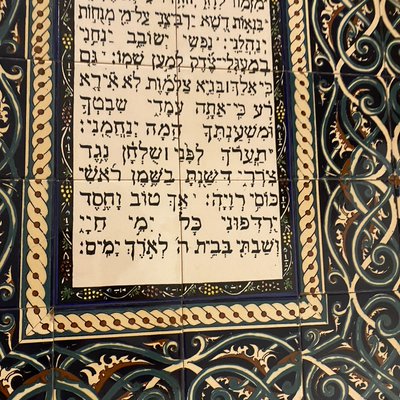 בִּנְאוֹת דֶּשֶׁא יַרְבִּיצֵנִי עַל מֵי מְנֻחוֹת
יְנַהֲלֵנִי: נַפְשִׁי יְשׁוֹבֵב יַנְחֵנִי
בְמַעְגְּלֵי־צֶדֶק לְמַעַן שְׁמוֹ: גַּם
כִּי־אֵלֵךְ בְּגֵיא צַלְמָוֶת לֹא־אִירָא
רָע כִּי־אַתָּה עִמָּדִי שִׁבְטְךָ
וּמִשְׁעַנְתֶּךָ הֵמָּה יְנַחֲמֻנִי:
תַּעֲרֹךְ לְפָנַי ׀ שֻׁלְחָן נֶגֶד
צֹרְרָי דִּשַּׁנְתָּ בַשֶּׁמֶן רֹאשִׁי
כּוֹסִי רְוָיָה: אַךְ טוֹב וָחֶסֶד
יִרְדְּפוּנִי כָּל־יְמֵי חַיָּי
וְשַׁבְתִּי בְּבֵית ה' לְאֹרֶךְ יָמִים: